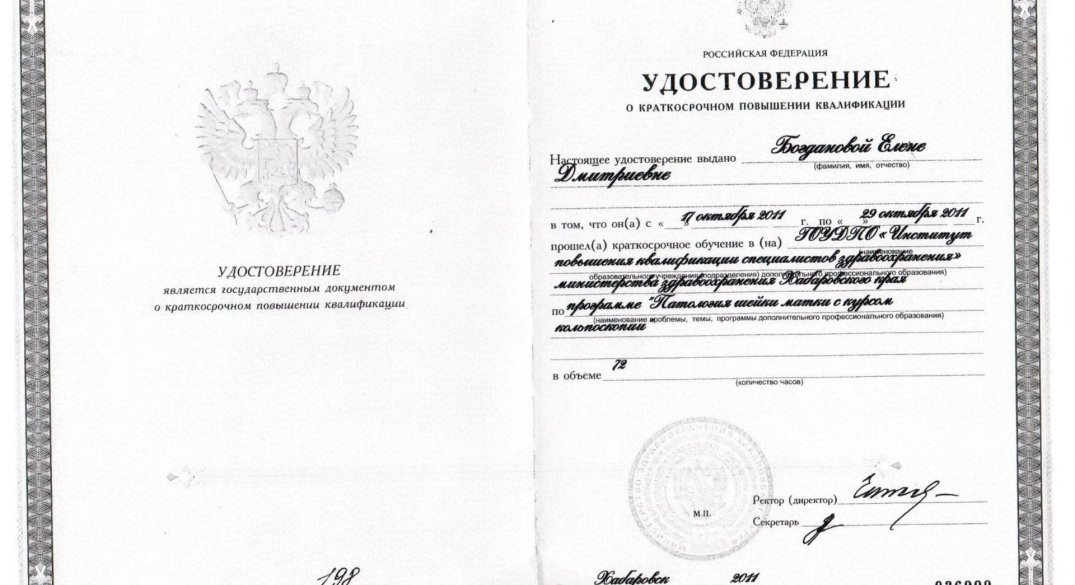 УДОСТОВЕРЕНИЕ
является государственным документом
о краткосрочном повышении квалификации
198
РОССИЙСКАЯ ФЕДЕРАЦИЯ
УДОСТОВЕРЕНИЕ
О КРАТКОСРОЧНОМ ПОВЫШЕНИИ КВАЛИФИКАЦИИ
Настоящее удостоверение выдано Богдановой Елене
(фамилия, имя, отчество)
Дмитриевне
в том, что он(а) с « 17 октября 2011 г. по « 29 октября 2011 г.
прошел(а) краткосрочное обучение в (на) ГОУДПО «Институт
(наименование
повышения квалификации специалистов здравоохранения»
образовательного учреждения (подразделения) дополнительного профессионального образования)
министерства здравоохранения Хабаровского края
по программе "Патология шейки матки с курсом
(наименование проблемы, темы, программы дополнительного профессионального образования)
кольпоскопии
в объеме 72
(количество часов)
М.П.
Ректор (директор)
Секретарь
Хабаровск 2011